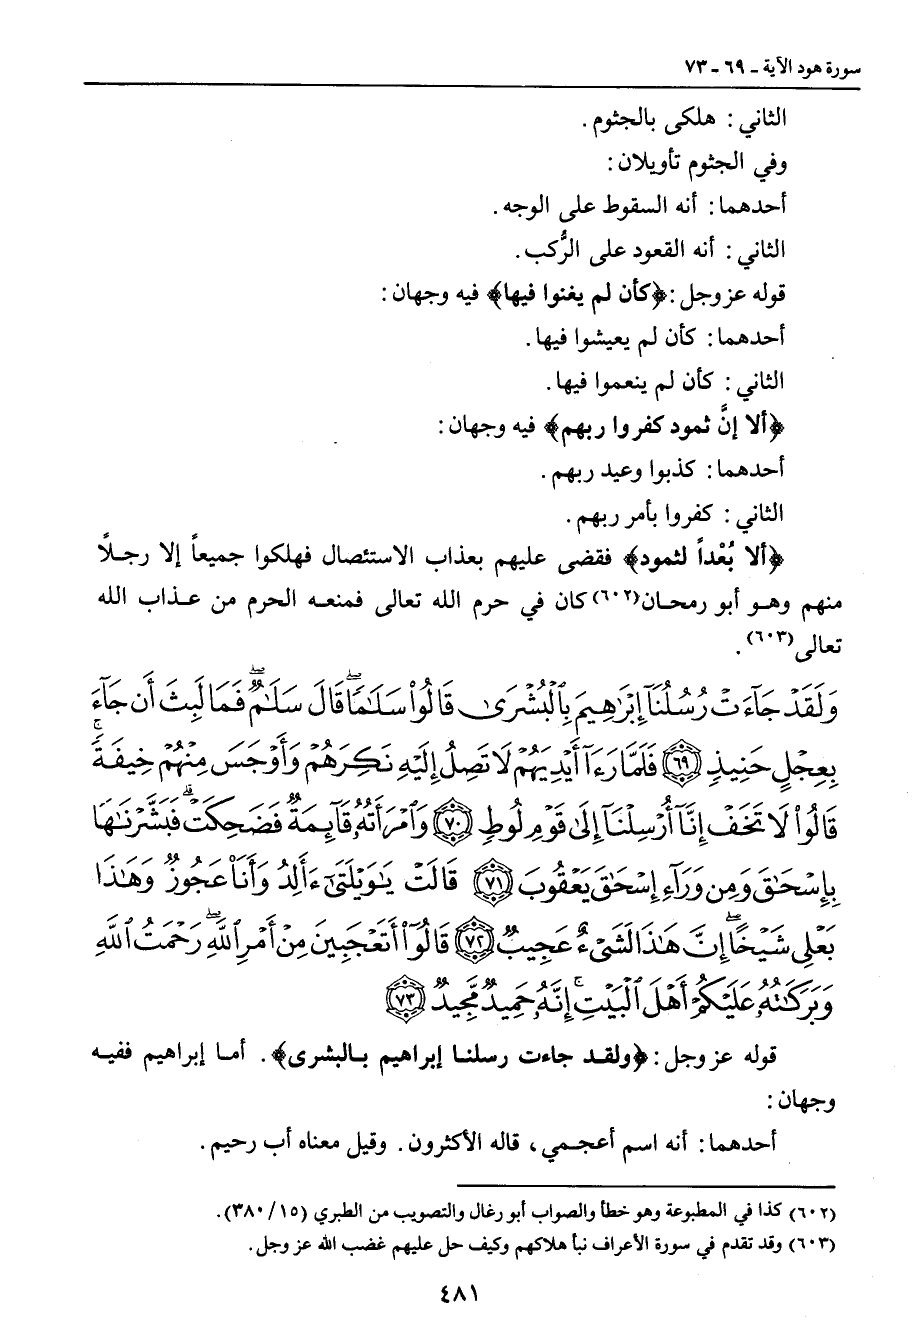 سورة هود الآية ـ ٦٩ ـ ٧٣
الثاني : هلكى بالجثوم .
وفي الجثوم تأويلان :
أحدهما : أنه السقوط على الوجه .
الثاني : أنه القعود على الرُّكب .
قوله عز وجل : ﴿كأن لم يغنوا فيها﴾ فيه وجهان :
أحدهما : كأن لم يعيشوا فيها .
الثاني : كأن لم ينعموا فيها .
﴿ألا إنَّ ثمود كفروا ربهم﴾ فيه وجهان :
أحدهما : كذبوا وعيد ربهم .
الثاني : كفروا بأمر ربهم .
﴿ألا بُعْداً لثمود﴾ فقضى عليهم بعذاب الاستئصال فهلكوا جميعاً إلا رجلاً
منهم وهو أبو رمحان(٦٠٢) كان في حرم الله تعالى فمنعه الحرم من عذاب الله
تعالى(٦٠٣) .
وَلَقَدْ جَآءَتْ رُسُلُنَآ إِبْرَٰهِيمَ بِٱلْبُشْرَىٰ قَالُوا۟ سَلَـٰمًا ۖ قَالَ سَلَـٰمٌ ۖ فَمَا لَبِثَ أَن جَآءَ
بِعِجْلٍ حَنِيذٍ ﴿٦٩﴾ فَلَمَّا رَءَآ أَيْدِيَهُمْ لَا تَصِلُ إِلَيْهِ نَكِرَهُمْ وَأَوْجَسَ مِنْهُمْ خِيفَةً ۚ
قَالُوا۟ لَا تَخَفْ إِنَّآ أُرْسِلْنَآ إِلَىٰ قَوْمِ لُوطٍ ﴿٧٠﴾ وَٱمْرَأَتُهُۥ قَآئِمَةٌ فَضَحِكَتْ فَبَشَّرْنَـٰهَا
بِإِسْحَـٰقَ وَمِن وَرَآءِ إِسْحَـٰقَ يَعْقُوبَ ﴿٧١﴾ قَالَتْ يَـٰوَيْلَتَىٰٓ ءَأَلِدُ وَأَنَا۠ عَجُوزٌ وَهَـٰذَا
بَعْلِى شَيْخًا ۖ إِنَّ هَـٰذَا لَشَىْءٌ عَجِيبٌ ﴿٧٢﴾ قَالُوٓا۟ أَتَعْجَبِينَ مِنْ أَمْرِ ٱللَّهِ ۖ رَحْمَتُ ٱللَّهِ
وَبَرَكَـٰتُهُۥ عَلَيْكُمْ أَهْلَ ٱلْبَيْتِ ۚ إِنَّهُۥ حَمِيدٌ مَّجِيدٌ ﴿٧٣﴾
قوله عز وجل : ﴿ولقد جاءت رسلنا إبراهيم بالبشرى﴾ . أما إبراهيم ففيه
وجهان :
أحدهما : أنه اسم أعجمي ، قاله الأكثرون . وقيل معناه أب رحيم .
(٦٠٢) كذا في المطبوعة وهو خطأ والصواب أبو رغال والتصويب من الطبري (٣٨٠/١٥) .
(٦٠٣) وقد تقدم في سورة الأعراف نبأ هلاكهم وكيف حل عليهم غضب الله عز وجل .
٤٨١